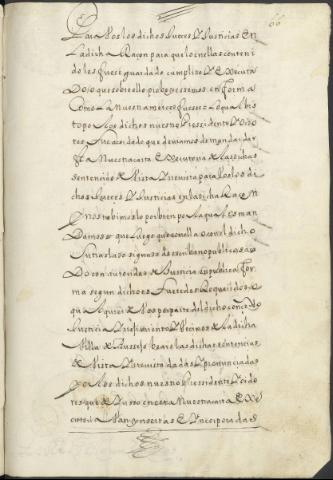 66
para nos los dichos Jueces y Justicias en
la dicha Raçon para que lo en ellas conteni
do les fuese guardado cumplido y executa
do o que sobre ello probeyesemos en forma
Como la nuestra merced fuese lo qual bis
to por los dichos nuestro Presidente y oydo
res fue acordado que deviamos de mandar dar
esta nuestra carta executoria de las dichas
sentencias de Vista y Revista para vos los di
chos Jueces y Justicias en la dicha Razon
y nos tubimoslo por bien por la qual os man
damos que luego que con ella o con el dicho
su traslado signado de escribano publico saca
do con autoridad de Justicia en publica for
ma segun dicho es fueredes Requeridos
por parte del dicho concejo
Justicia y Regimiento y Vecinos de la dicha
Villa de beais las dichas sentencias
de Vista y Revista dadas y pronunciadas
por los dichos nuestro Presidente y oido
res que de suso en esta nuestra carta exe
cutoria van insertas e yncorporadas